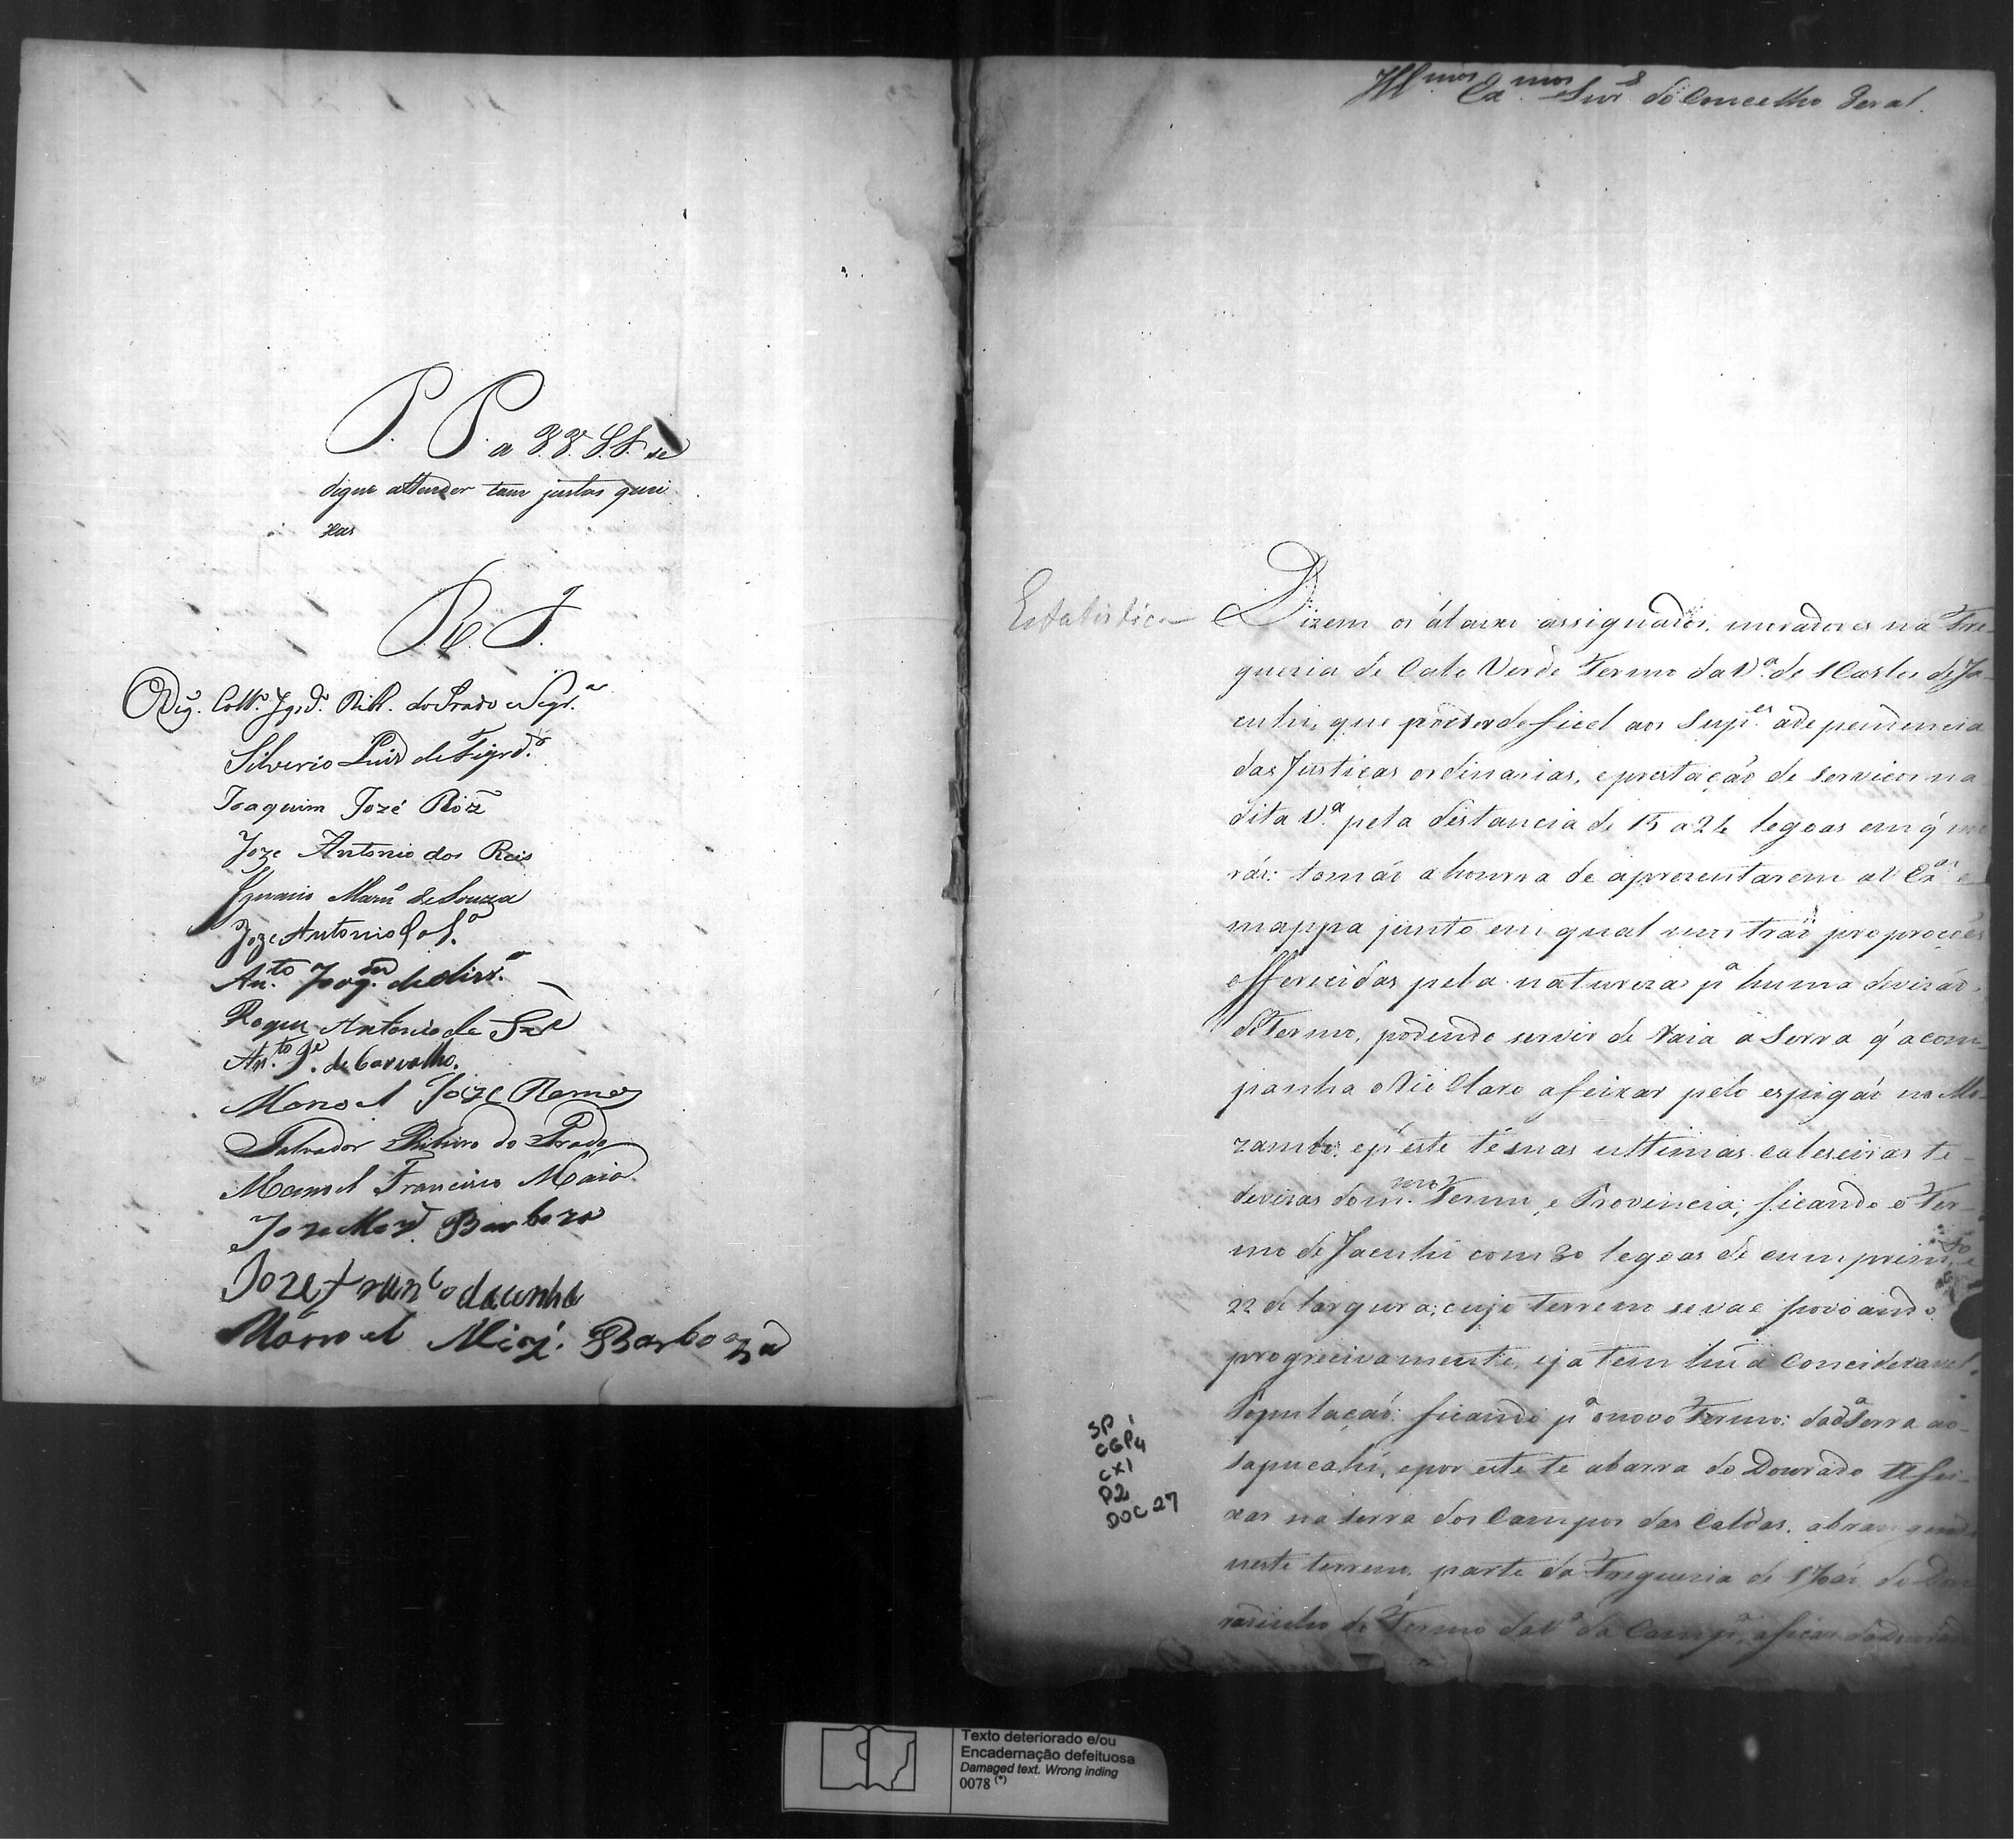 P. P. a VV. SS. se
digne attender tam justas quei
xas
R. J.
Silverio Luis de Figrd.º
Joaquim Jozé Roiz
Joze Antonio dos Reis
Ignacio de Souza
Joze Antonio
An.to Joaq.m de
Roque Antonio de
An.to J.e de Carvalho.
Manoel Joze Ramos
Salvador Ribeiro do Prado
Manoel Francisco Maia
Joze Barboza
Joze Franco da cunha
Manoel Barboza
Ill.mos Ex.mos Snr.s do Concelho Geral.
Estatistica
Dizem os ábaixo assignados, moradores na Fre-
guezia de Cabo Verde Termo da V.a de S Carlos de Ja-
cuhi, que ser deficel aos Sup.es a dependencia
das Justiças ordinarias, e prestação de serviços na
dita V.a pela distancia de 15 a 24 legoas em q̃
tomáo a honrra de aprezentarem a V Ex.as
mappa junto em qual mostrão proporcões
offerecidas pela natureza p.a huma divizáo
de Termo, podendo servir de raia a Serra q̃ acom-
panha o Rio Claro a feixar pelo espigáo no Mo-
zambo, e p.r este té suas ultimas cabeceiras te
devizas do m.mo Termo, e Provincia; ficando o Ter-
mo de Jacuhi com 30 legoas de cumprim.to e
22 de largura; cujo terreno se vae povoando
progrecivamente, e ja tem hũa Concideravel
Populaçáo: ficando p.a o novo Termo: da d.a Serra ao
Sapucahi, e por este te abarra do Dourado a fei-
xar na Serra dos Campos das Caldas, abrangendo
neste terreno parte da Freguezia de do Dou
radinho do Termo da V.a da Camp.a, a ficar
SP
CGP4
CX1
P2
DOC 27
Texto deteriorado e/ou
Encadernação defeituosa
Damaged text. Wrong inding
0078 (*)